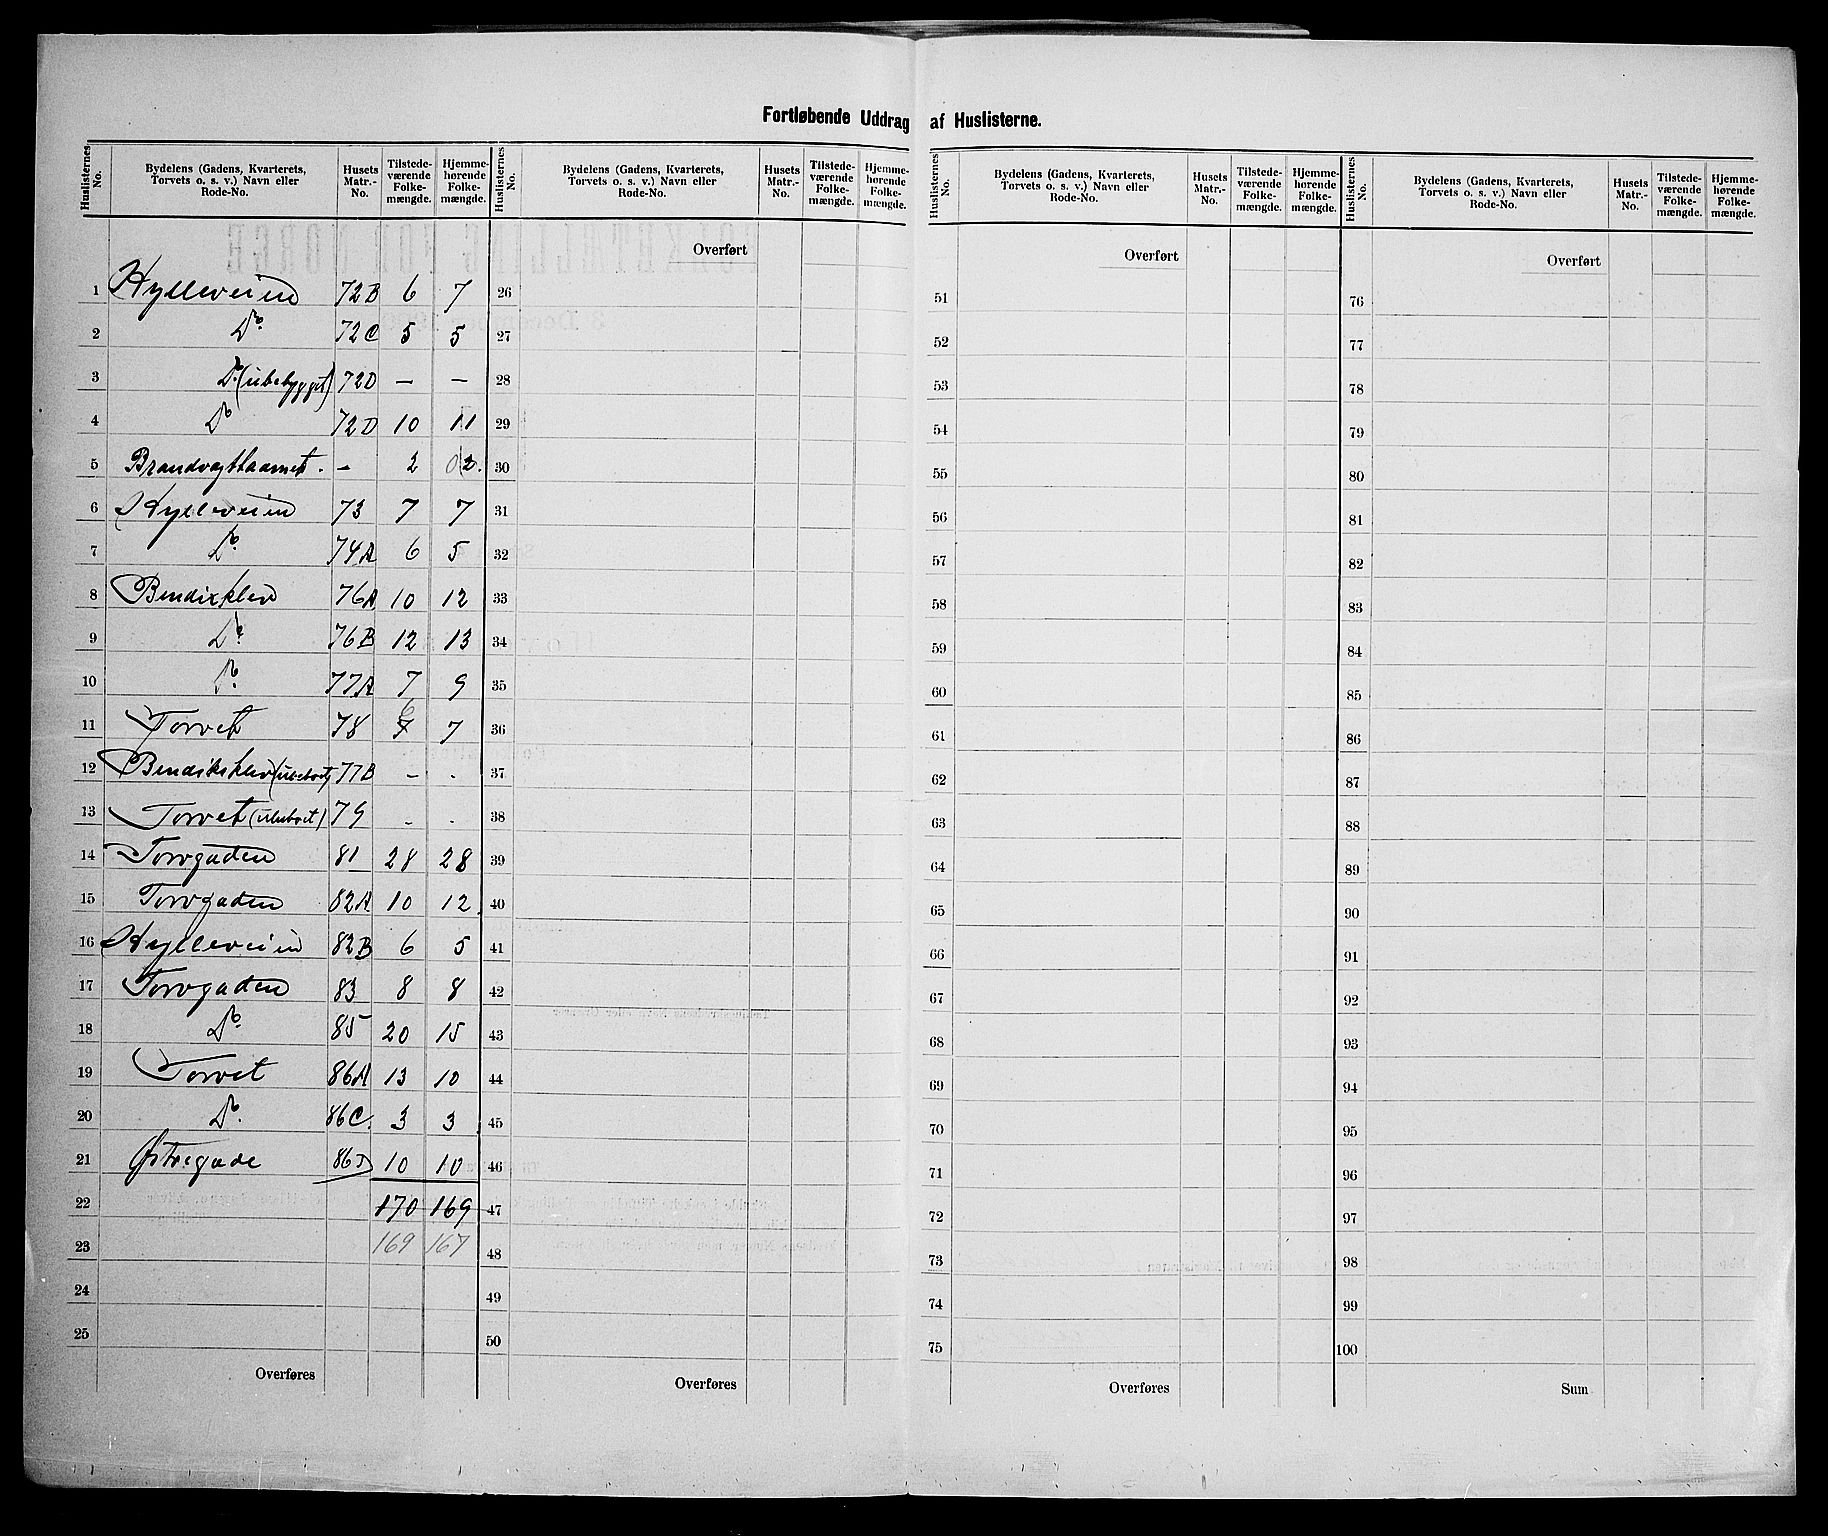 Fortløbende Uddrag af Huslisterne.
Huslisternes No. | Bydelens (Gadens, Kvarterets, Torvets o. s. v.) Navn eller Rode-No. | Husets Matr.-No. | Tilstedeværende Folkemængde. | Hjemmehørende Folkemængde.
1 Hylleveien 72B 6 7
2 Do. 72C 5 5
3 Do. (ubebygget) 72D — —
4 Do 72D 10 11
5 Brandvagttaarnet. - 2 0 2.
6 Hylleveien 73 7 7
7 Do. 74A 6 5
8 Bendixklev 76A 10 12
9 Do. 76B 12 13
10 Do. 77A 7 9
11 Torvet 78 7 6 7
12 Bendiksklev (ubeboet) 77B - -
13 Torvet (ubeboet) 79 - -
14 Torvgaden 81 28 28
15 Torvgaden 82A 10 12
16 Hylleveien 82B 6 5
17 Torvgaden 83 8 8
18 Do. 85 20 15
19 Torvet 86A 13 10
20 Do. 86C. 3 3
21 Østregade 86D 10 10
22 170 169
23 169 167
24
25
Overføres
Huslisternes No. | Bydelens (Gadens, Kvarterets, Torvets o. s. v.) Navn eller Rode-No. | Husets Matr.-No. | Tilstedeværende Folkemængde. | Hjemmehørende Folkemængde.
Overført
26
27
28
29
30
31
32
33
34
35
36
37
38
39
40
41
42
43
44
45
46
47
48
49
50
Overføres
Huslisternes No. | Bydelens (Gadens, Kvarterets, Torvets o. s. v.) Navn eller Rode-No. | Husets Matr.-No. | Tilstedeværende Folkemængde. | Hjemmehørende Folkemængde.
Overført
51
52
53
54
55
56
57
58
59
60
61
62
63
64
65
66
67
68
69
70
71
72
73
74
75
Overføres
Huslisternes No. | Bydelens (Gadens, Kvarterets, Torvets o. s. v.) Navn eller Rode-No. | Husets Matr.-No. | Tilstedeværende Folkemængde. | Hjemmehørende Folkemængde.
Overført
76
77
78
79
80
81
82
83
84
85
86
87
88
89
90
91
92
93
94
95
96
97
98
99
100
Sum